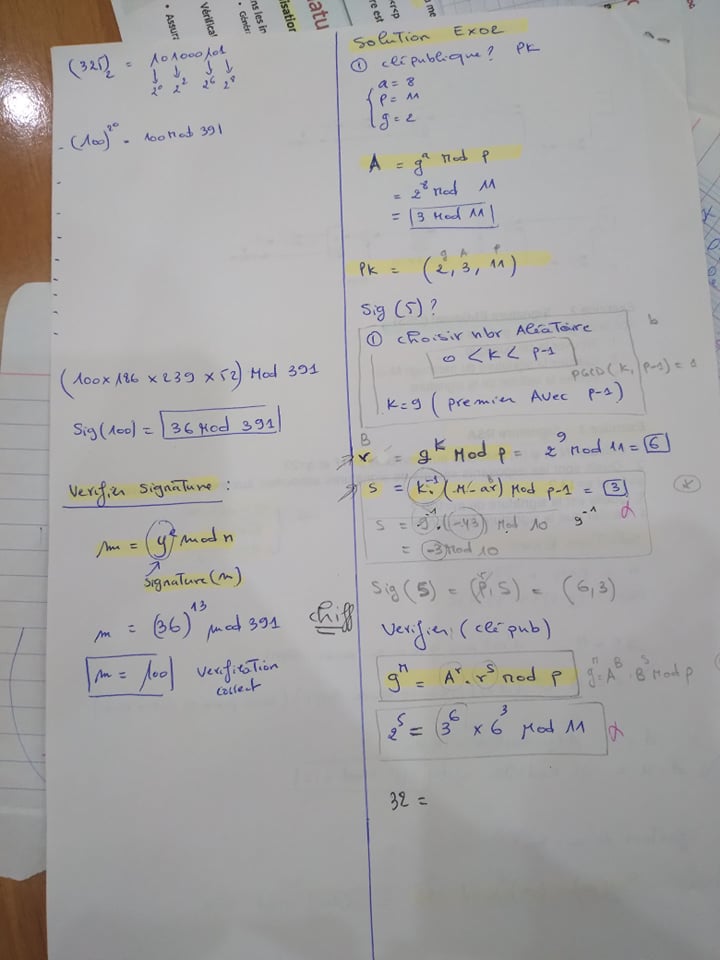 (325)₂ = 101000101
2⁰ 2² 2⁶ 2⁸
- (100)^2⁰ = 100 Mod 391
(100 x 186 x 239 x 52) Mod 391
Sig(100) = 36 Mod 391
Verifier Signature :
m = y^e mod n
Signature (m)
m = (36)^13 mod 391
m = 100 verification
correct
chiff
Solution Exo2
① clépublique? PK
a = 8
p = 11
g = 2
A = g^a Mod p
= 2⁸ Mod 11
= 3 Mod 11
g A p
PK = (2, 3, 11)
Sig (5) ?
① choisir nbr Aléatoire b
0 < K < p-1
PGCD(K, p-1) = 1
K = 9 ( premier Avec p-1)
B
r = g^K Mod p = 2⁹ Mod 11 = 6
s = K⁻¹ (M - ar) Mod p-1 = 3
s = 9⁻¹ (-43) Mod 10 9⁻¹
= -3 Mod 10
Sig (5) = (r, S) = (6,3)
Verifier (clé pub)
g^m = A^r . r^s mod p g^m = A^B . B^S Mod p
2⁵ = 3⁶ x 6³ Mod 11
32 =